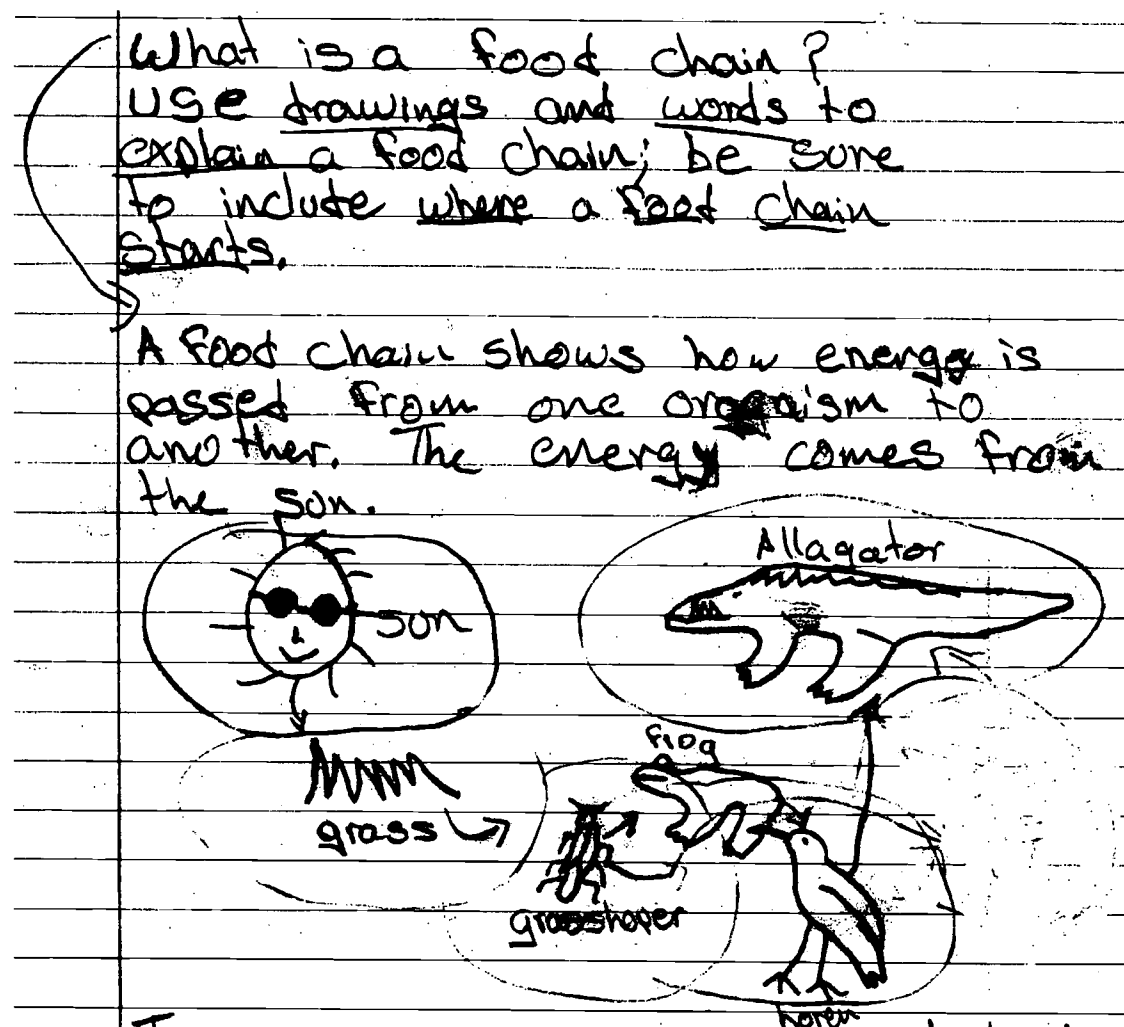 What is a food chain?
Use drawings and words to
explain a food chain; be sure
to include where a food chain
starts.
A food chain shows how energy is
passed from one organism to
another. The energy comes from
the sun.
Allagator
sun
frog
grass
grasshoper
horen